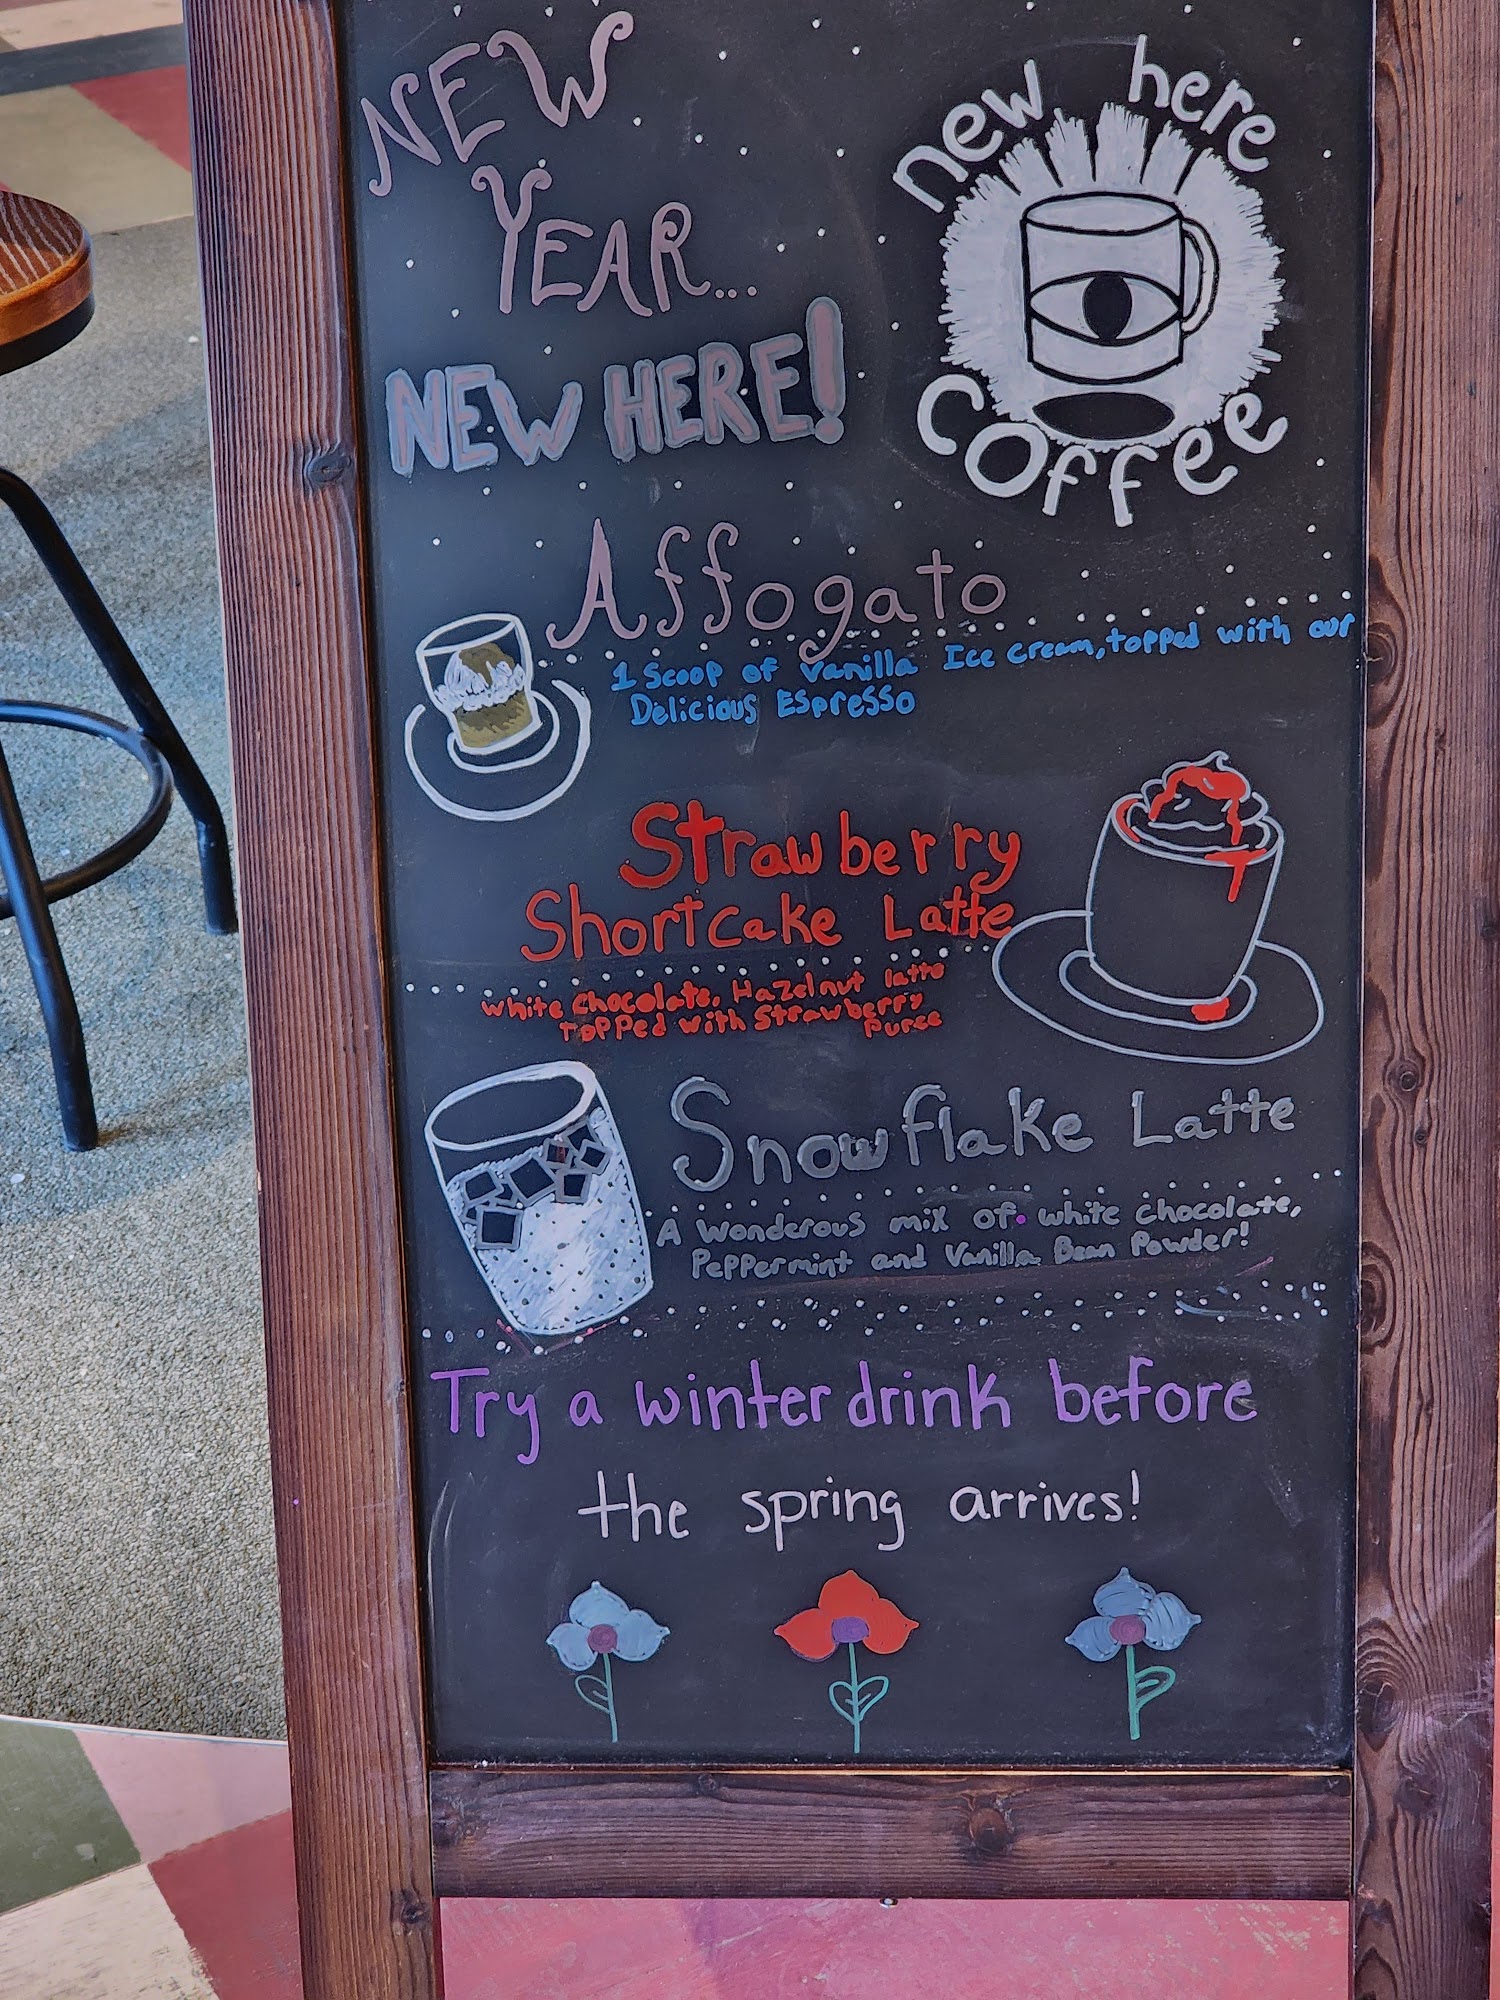 NEW
YEAR...
NEW HERE!
new here
coffee
Affogato
1 Scoop of Vanilla Ice cream, topped with our
Delicious Espresso
Strawberry
Shortcake Latte
White Chocolate, Hazelnut latte
Topped with Strawberry
Puree
Snowflake Latte
A Wonderous mix of white chocolate,
Peppermint and Vanilla Bean Powder!
Try a winter drink before
the spring arrives!